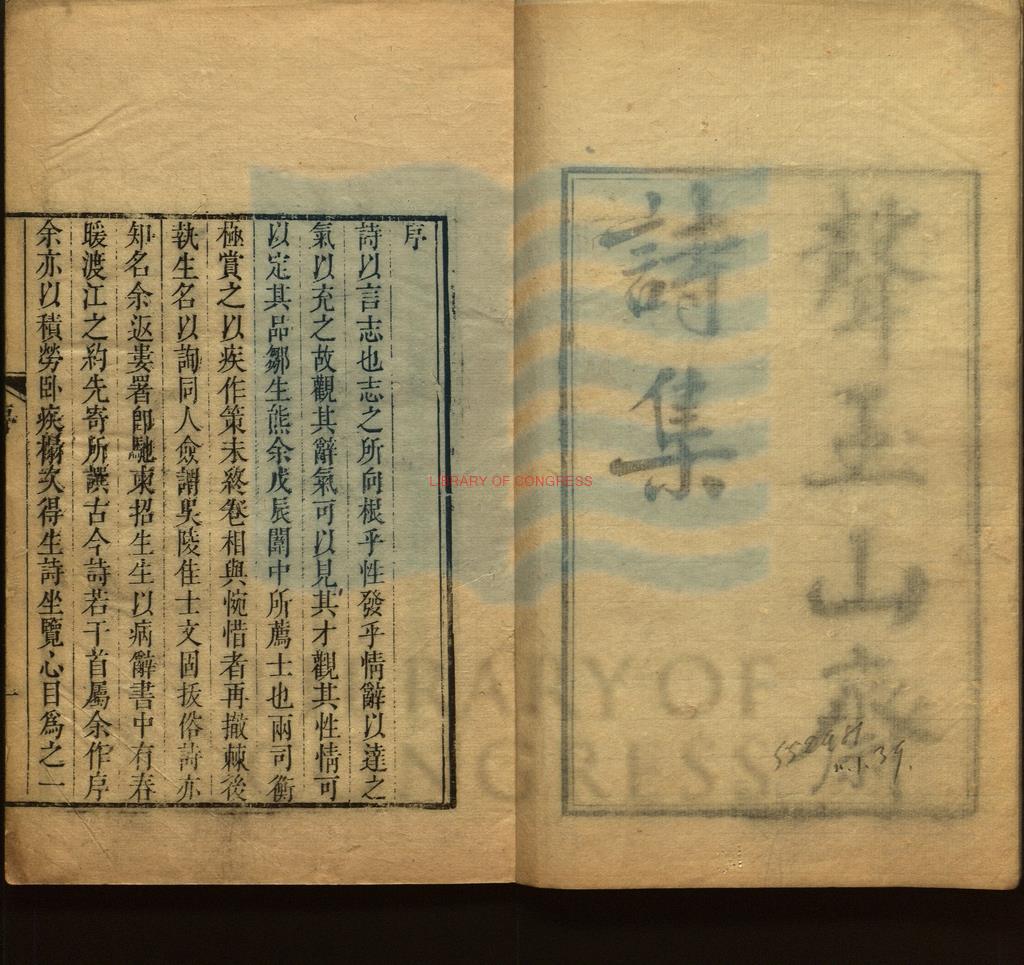 聲玉山齋
詩集
序
詩以言志也志之所向根乎性發乎情辭以達之
氣以充之故觀其辭氣可以見其才觀其性情可
以定其品鄒生熊余戊辰闈中所薦士也兩司衡
極賞之以疾作策未終卷相與惋惜者再撤棘後
執生名以詢同人僉謂吳陵佳士文固拔俗詩亦
知名余返婁署卽馳柬招生生以病辭書中有春
暖渡江之約先寄所譔古今詩若干首屬余作序
余亦以積勞卧疾榻次得生詩坐覽心目爲之一
序
一
LIBRARY OF CONGRESS